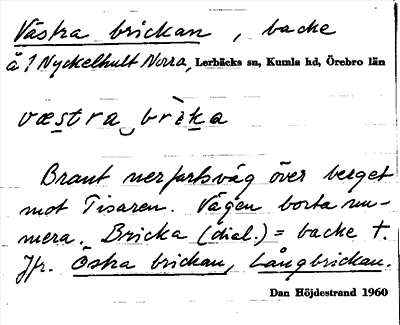 Västra brickan, backe
å 1 Nyckelhult Norra, Lerbäcks sn, Kumla hd, Örebro län
væstra‿brìka
Brant nerfartsväg över berget
mot Tisaren. Vägen borta nu-
mera. Bricka (dial.) = backe †.
Jfr. Östra brickan, Långbrickan.
Dan Höjdestrand 1960